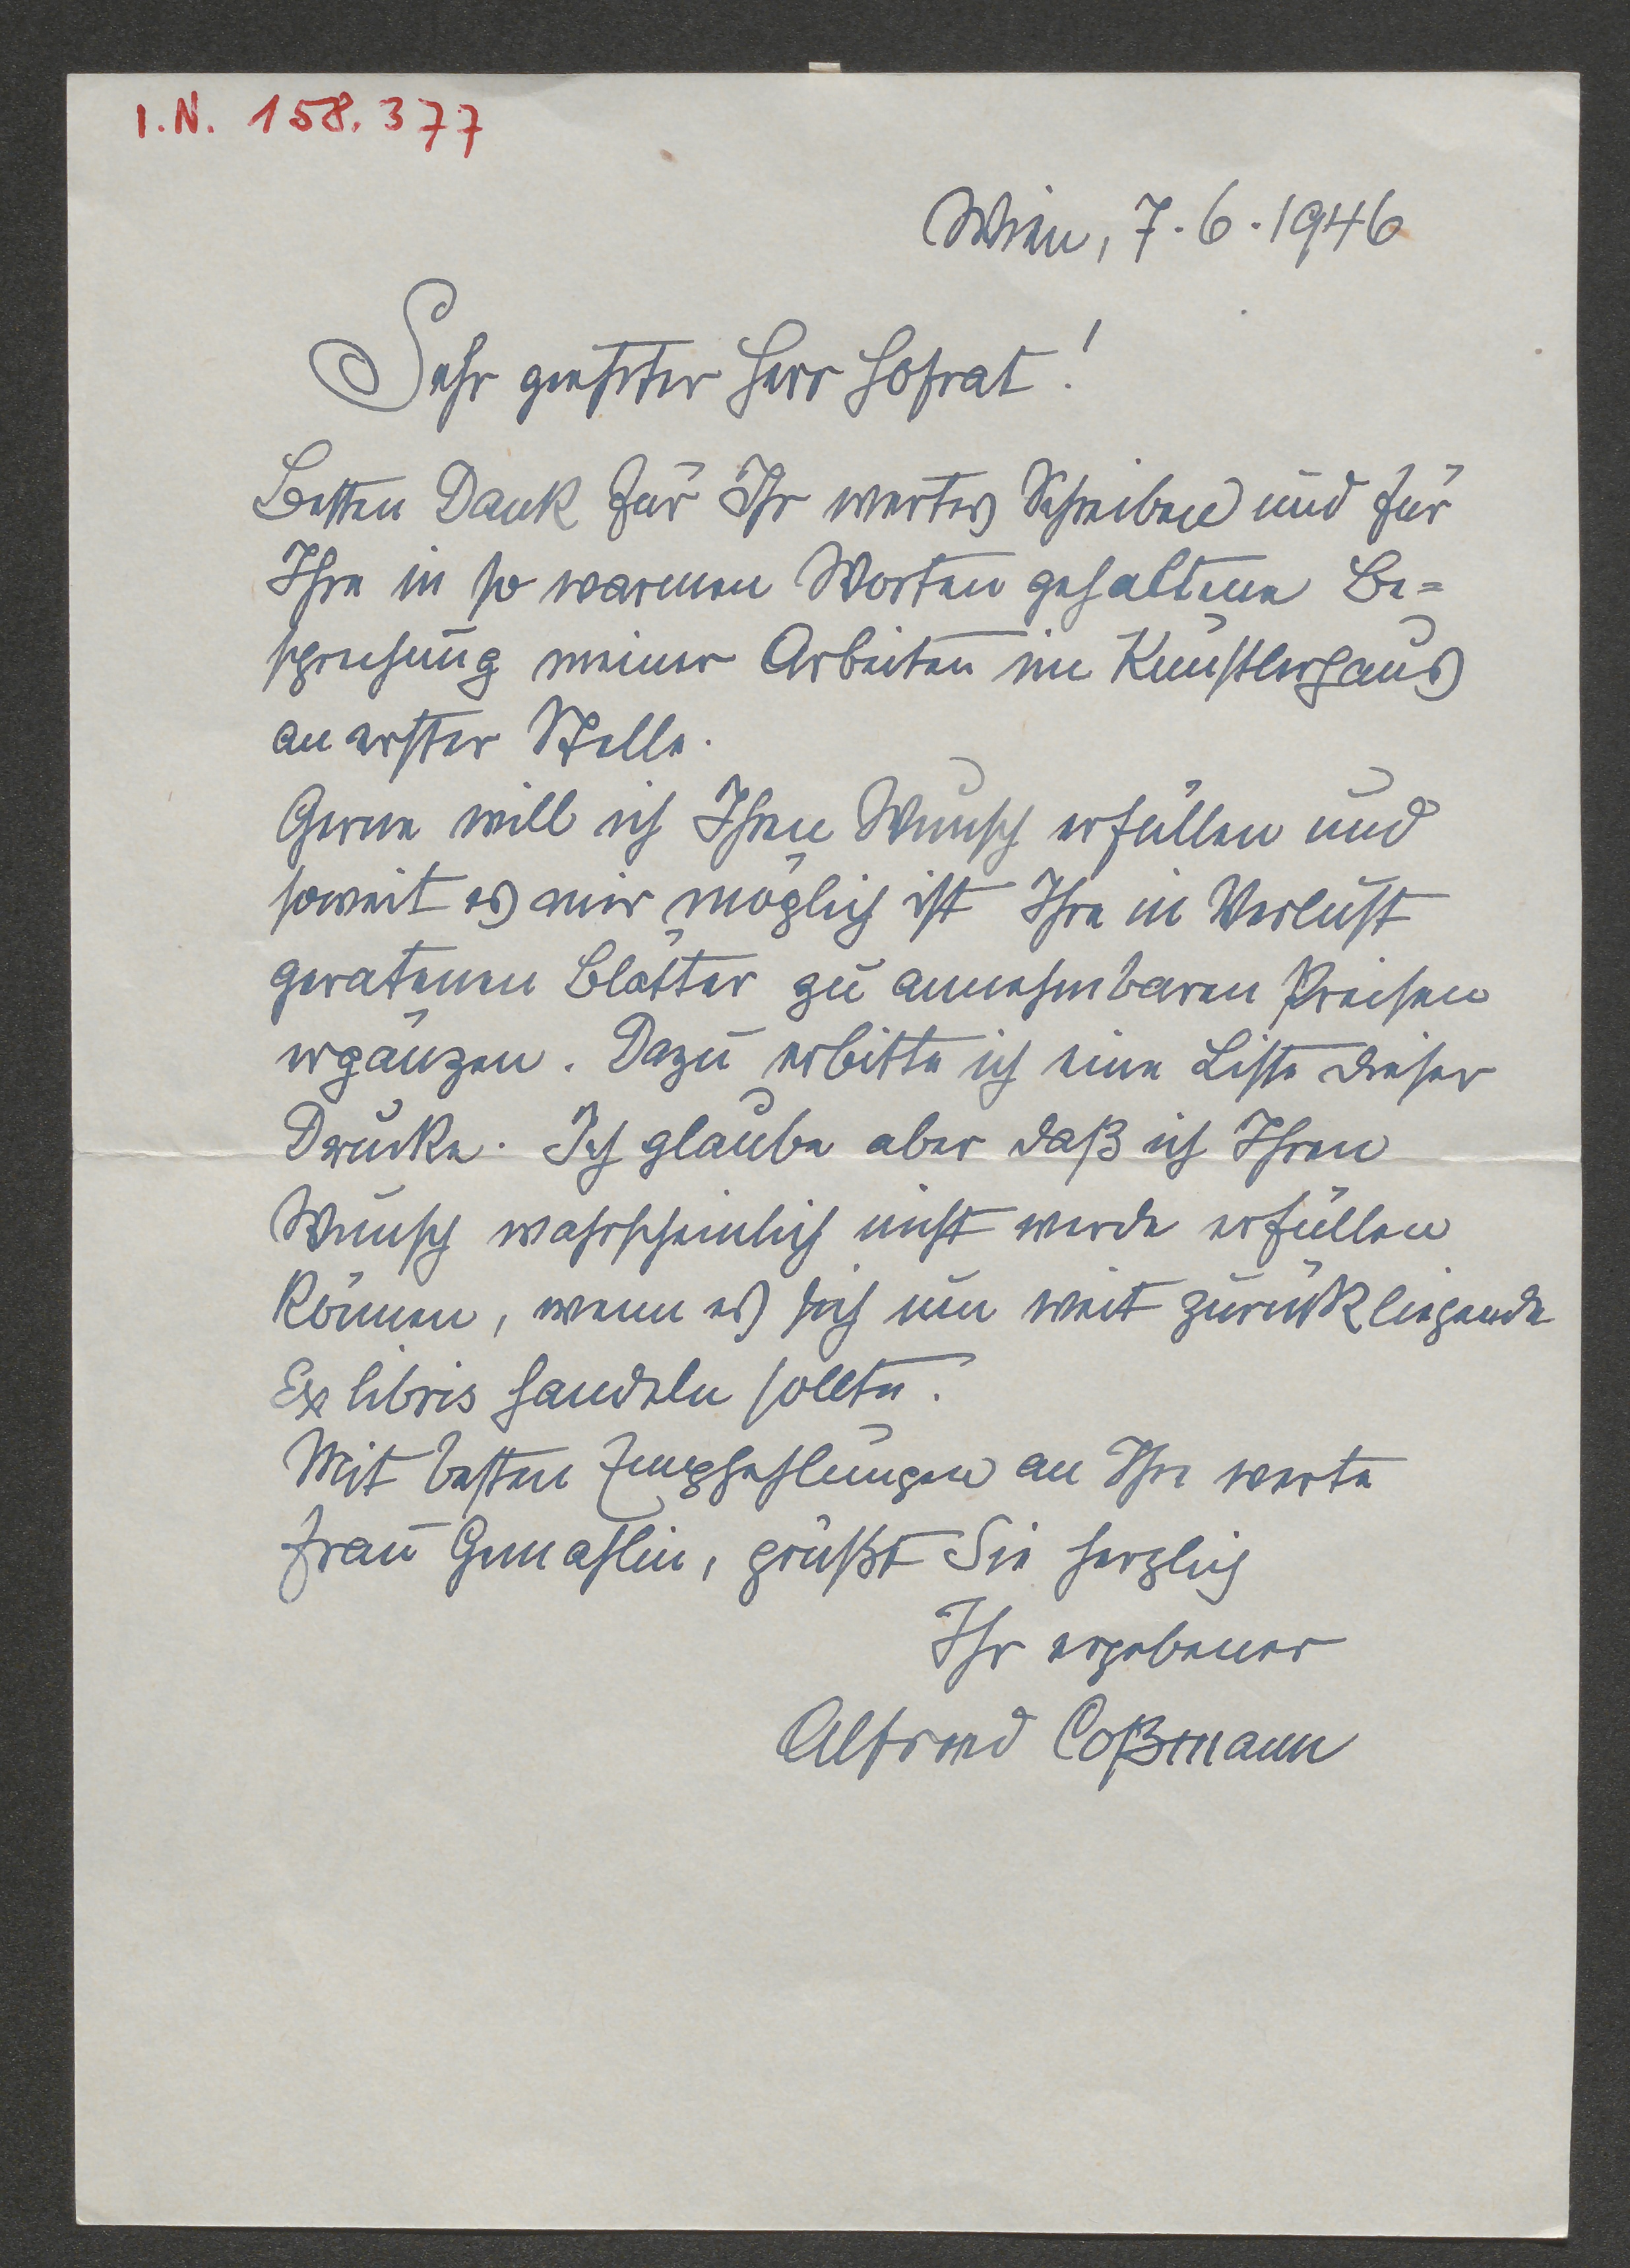 I.N. 158.377
Wien, 7.6.1946
Sehr geehrter Herr Hofrat!
Besten Dank für Ihr wertes Schreiben und für
Ihre in so warmen Worten gehaltene Be=
sprechung meiner Arbeiten im Künstlerhaus
an erster Stelle.
Gerne will ich Ihren Wunsch erfüllen und
soweit es mir möglich ist Ihre in Verlust
geratenen Blätter zu annehmbaren Preisen
ergänzen. Dazu erbitte ich eine Liste dieser
Drucke. Ich glaube aber daß ich Ihren
Wunsch wahrscheinlich nicht werde erfüllen
können, wenn es sich um weit zurückliegende
Exlibris handeln sollte.
Mit besten Empfehlungen an Ihre werte
Frau Gemahlin, grüßt Sie herzlich
Ihr ergebener
Alfred Coßmann